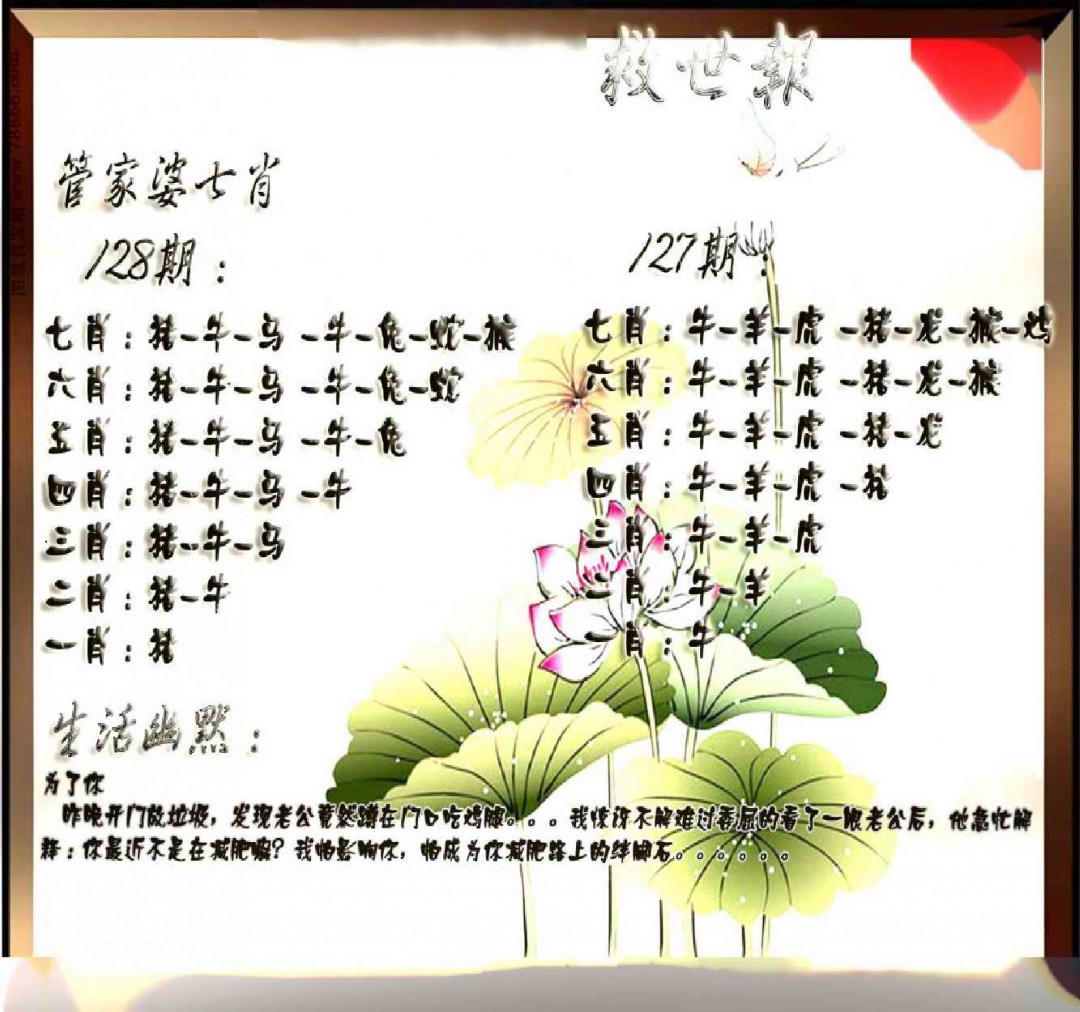 救世報
管家婆七肖
128期：
七肖：猪-牛-马 -牛-兔-蛇-猴
六肖：猪-牛-马 -牛-兔-蛇
五肖：猪-牛-马 -牛-兔
四肖：猪-牛-马 -牛
三肖：猪-牛-马
二肖：猪-牛
一肖：猪
127期：
七肖：牛-羊-虎 -猪-龙-猴-鸡
六肖：牛-羊-虎 -猪-龙-猴
五肖：牛-羊-虎 -猪-龙
四肖：牛-羊-虎 -猪
三肖：牛-羊-虎
二肖：牛-羊
一肖：牛
生活幽默：
为了你
昨晚开门放垃圾，发现老公竟然蹲在门口吃鸡腿。。。我惊讶不解难过委屈的看了一眼老公后，他急忙解
释：你最近不是在减肥嘛？我怕影响你，怕成为你减肥路上的绊脚石。。。。。。